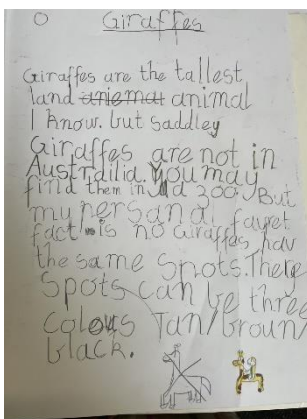 Giraffes
Giraffes are the tallest
land aniemal animal
I know. but saddley
Giraffes are not in
Australia. You may
find them in a zoo. But
my persanal fayret
fact is no Giraffes hav
the same spots. There
Spots can be three
colous Tan/broun/
black.